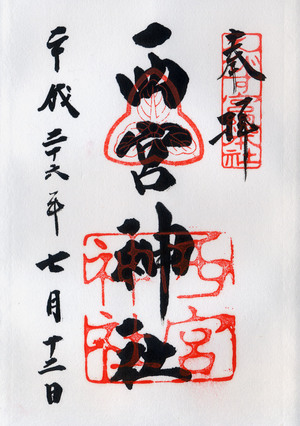 奉拝
西宮神社
平成二十六年七月十二日
西宮
神社